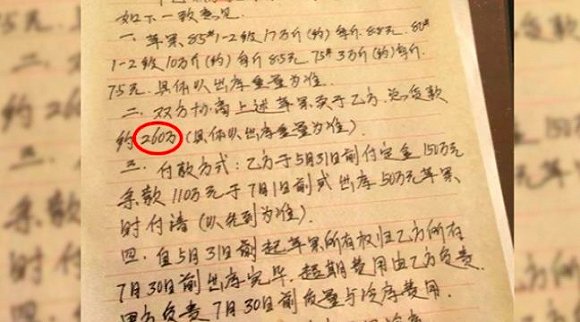 如下一致意见
一.苹果,85#1-2级17万斤(约)每斤8.8元.80#
1-2级10万斤(约)每斤8.5元.75#3万斤(约)每斤
7.5元.具体以出库重量为准.
二.双方协商上述苹果卖于乙方,总货款
约260万(具体以出库重量为准)
三.付款方式:乙方于5月31日前付定金150万元
余款110万元于7月1日前或出库50万元苹果
时付清(以先到为准).
四.自5月31日前起苹果所有权归乙方所有
7月30日前出库完毕,超期费用由乙方负责.
甲方负责7月30日前质量与冷库费用.